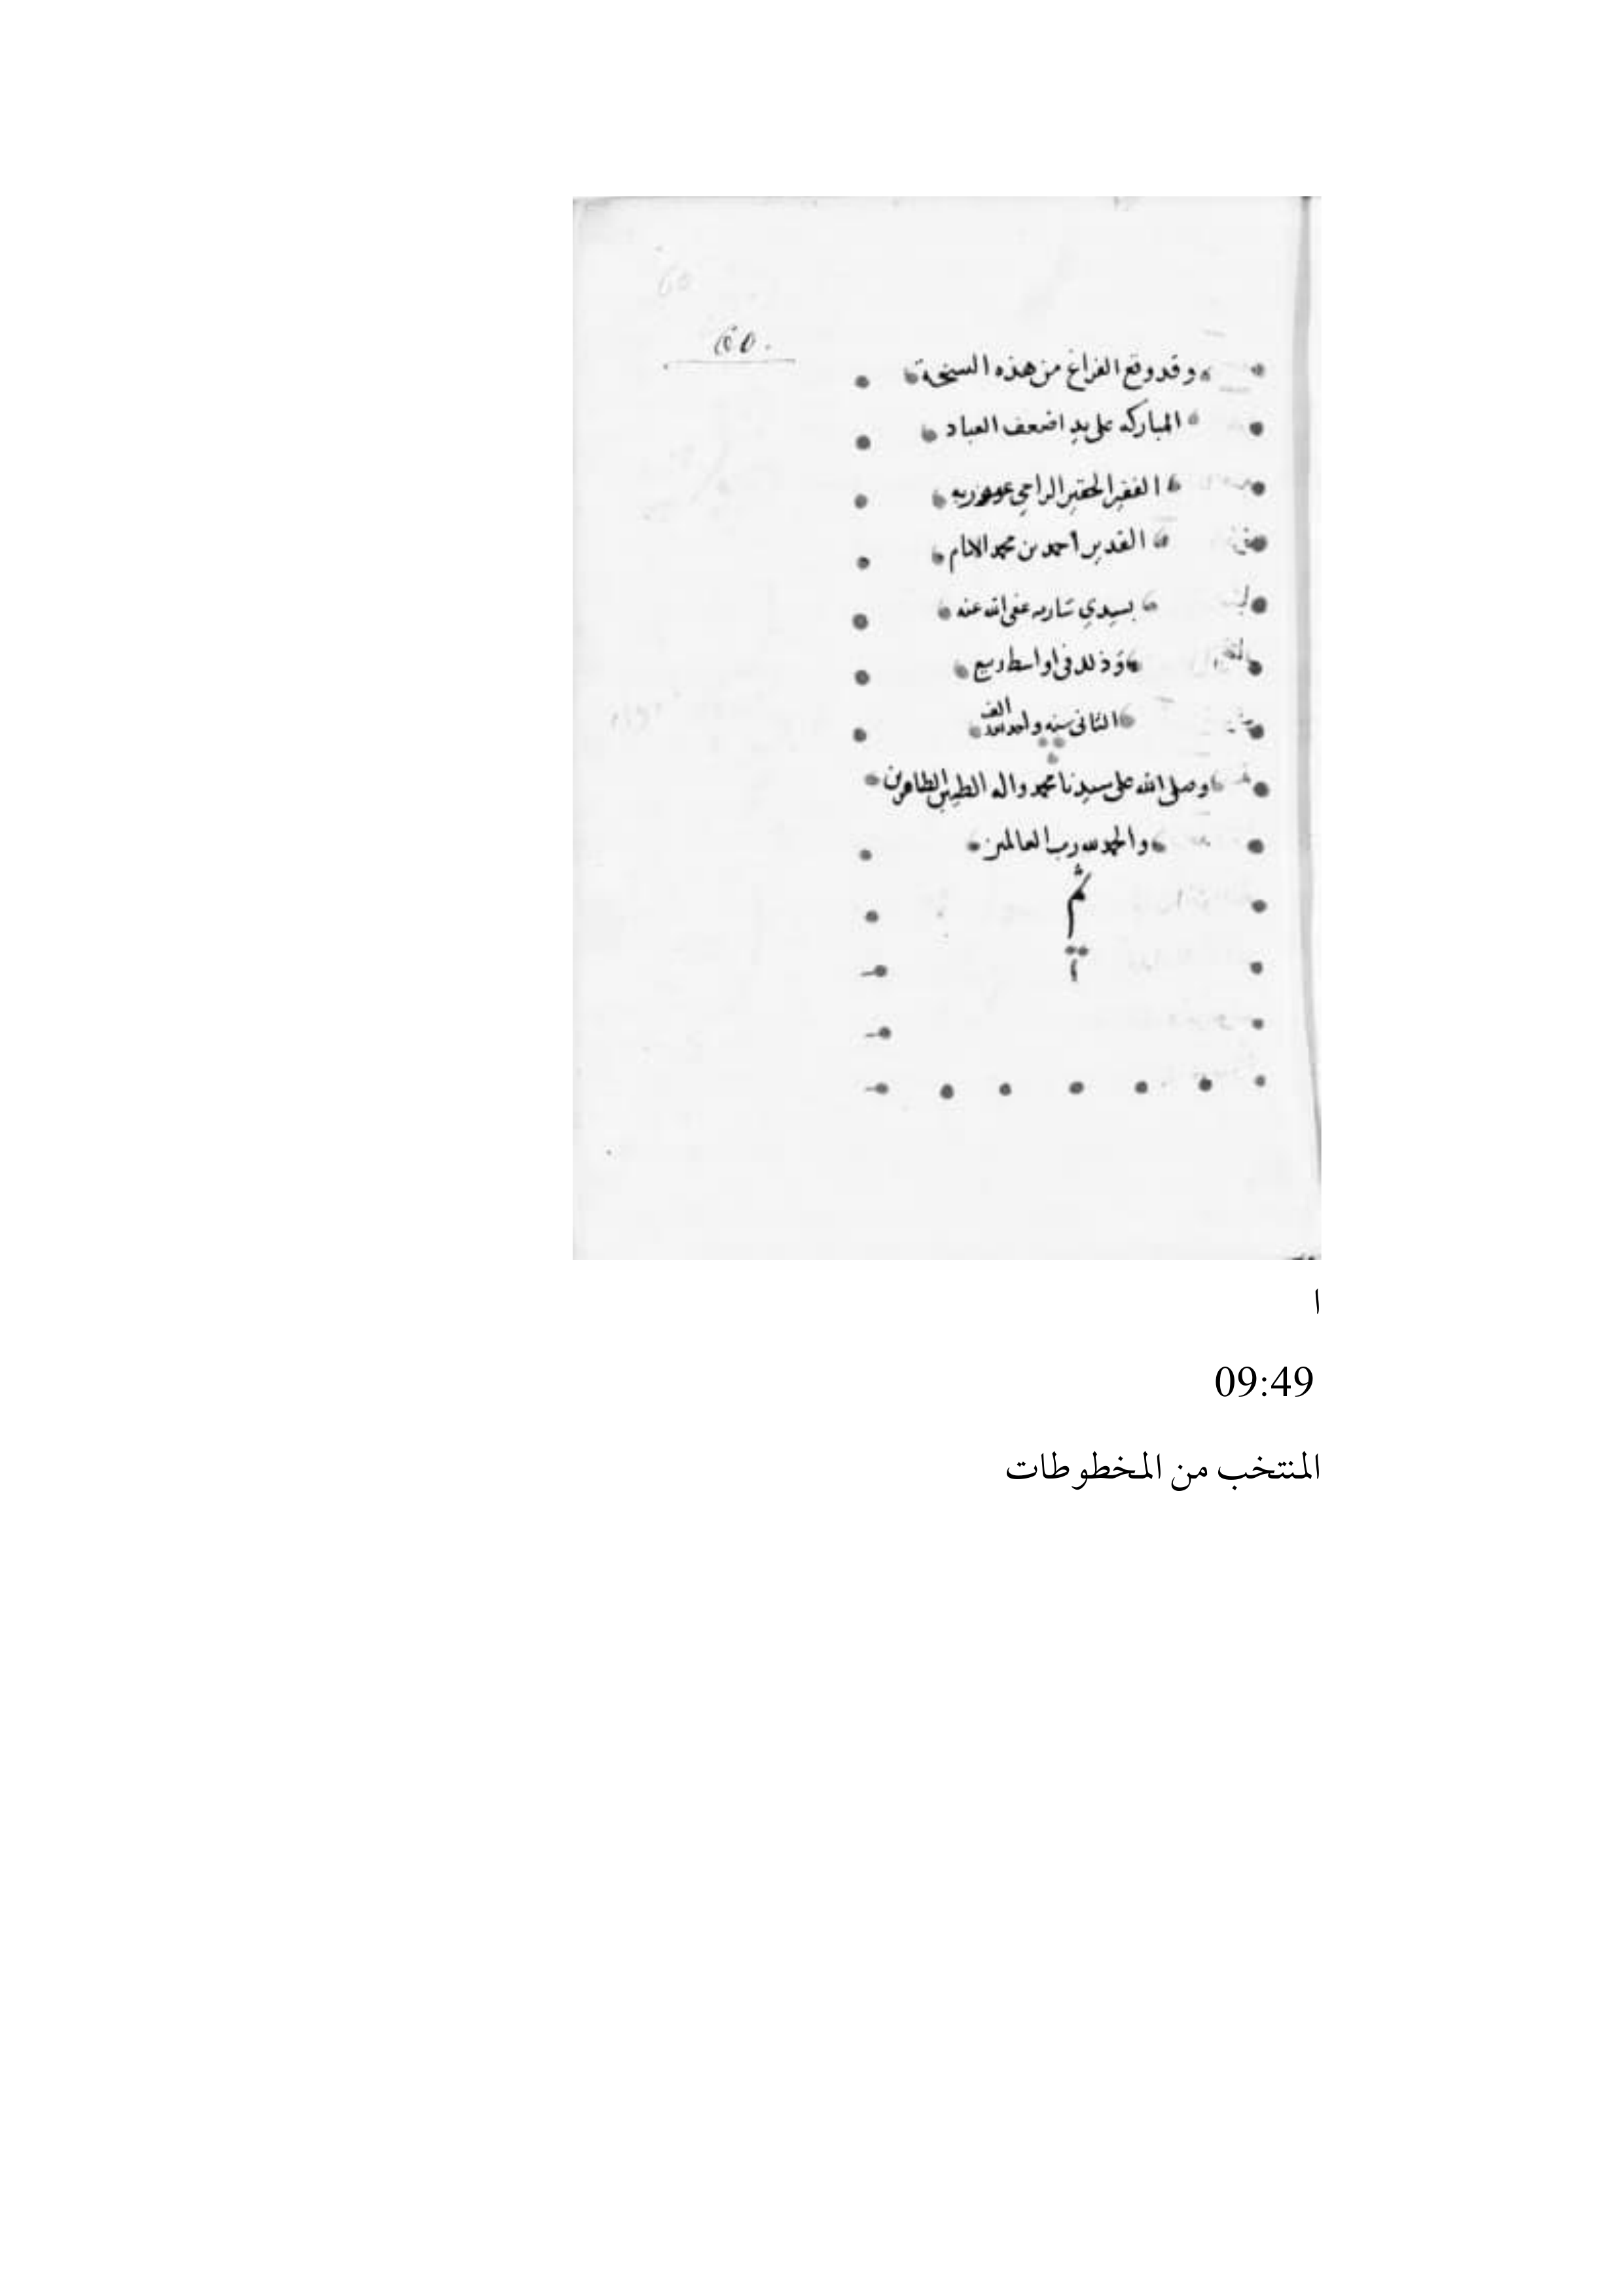 ٥٥٠
وقد وقع الفراغ من هذه السنخة
المباركه على يد اضعف العباد
الفقير الحقير الراجي عفو ربه
القدير أحمد بن محمد الامام
بسيدي عفى الله عنه
وذلك فى اواسط ربيع
الثانى سنه والف
وصلى الله على سيدنا محمد واله الطيبين الطاهرين
والحمد لله رب العالمين
تم
ا
09:49
المنتخب من المخطوطات